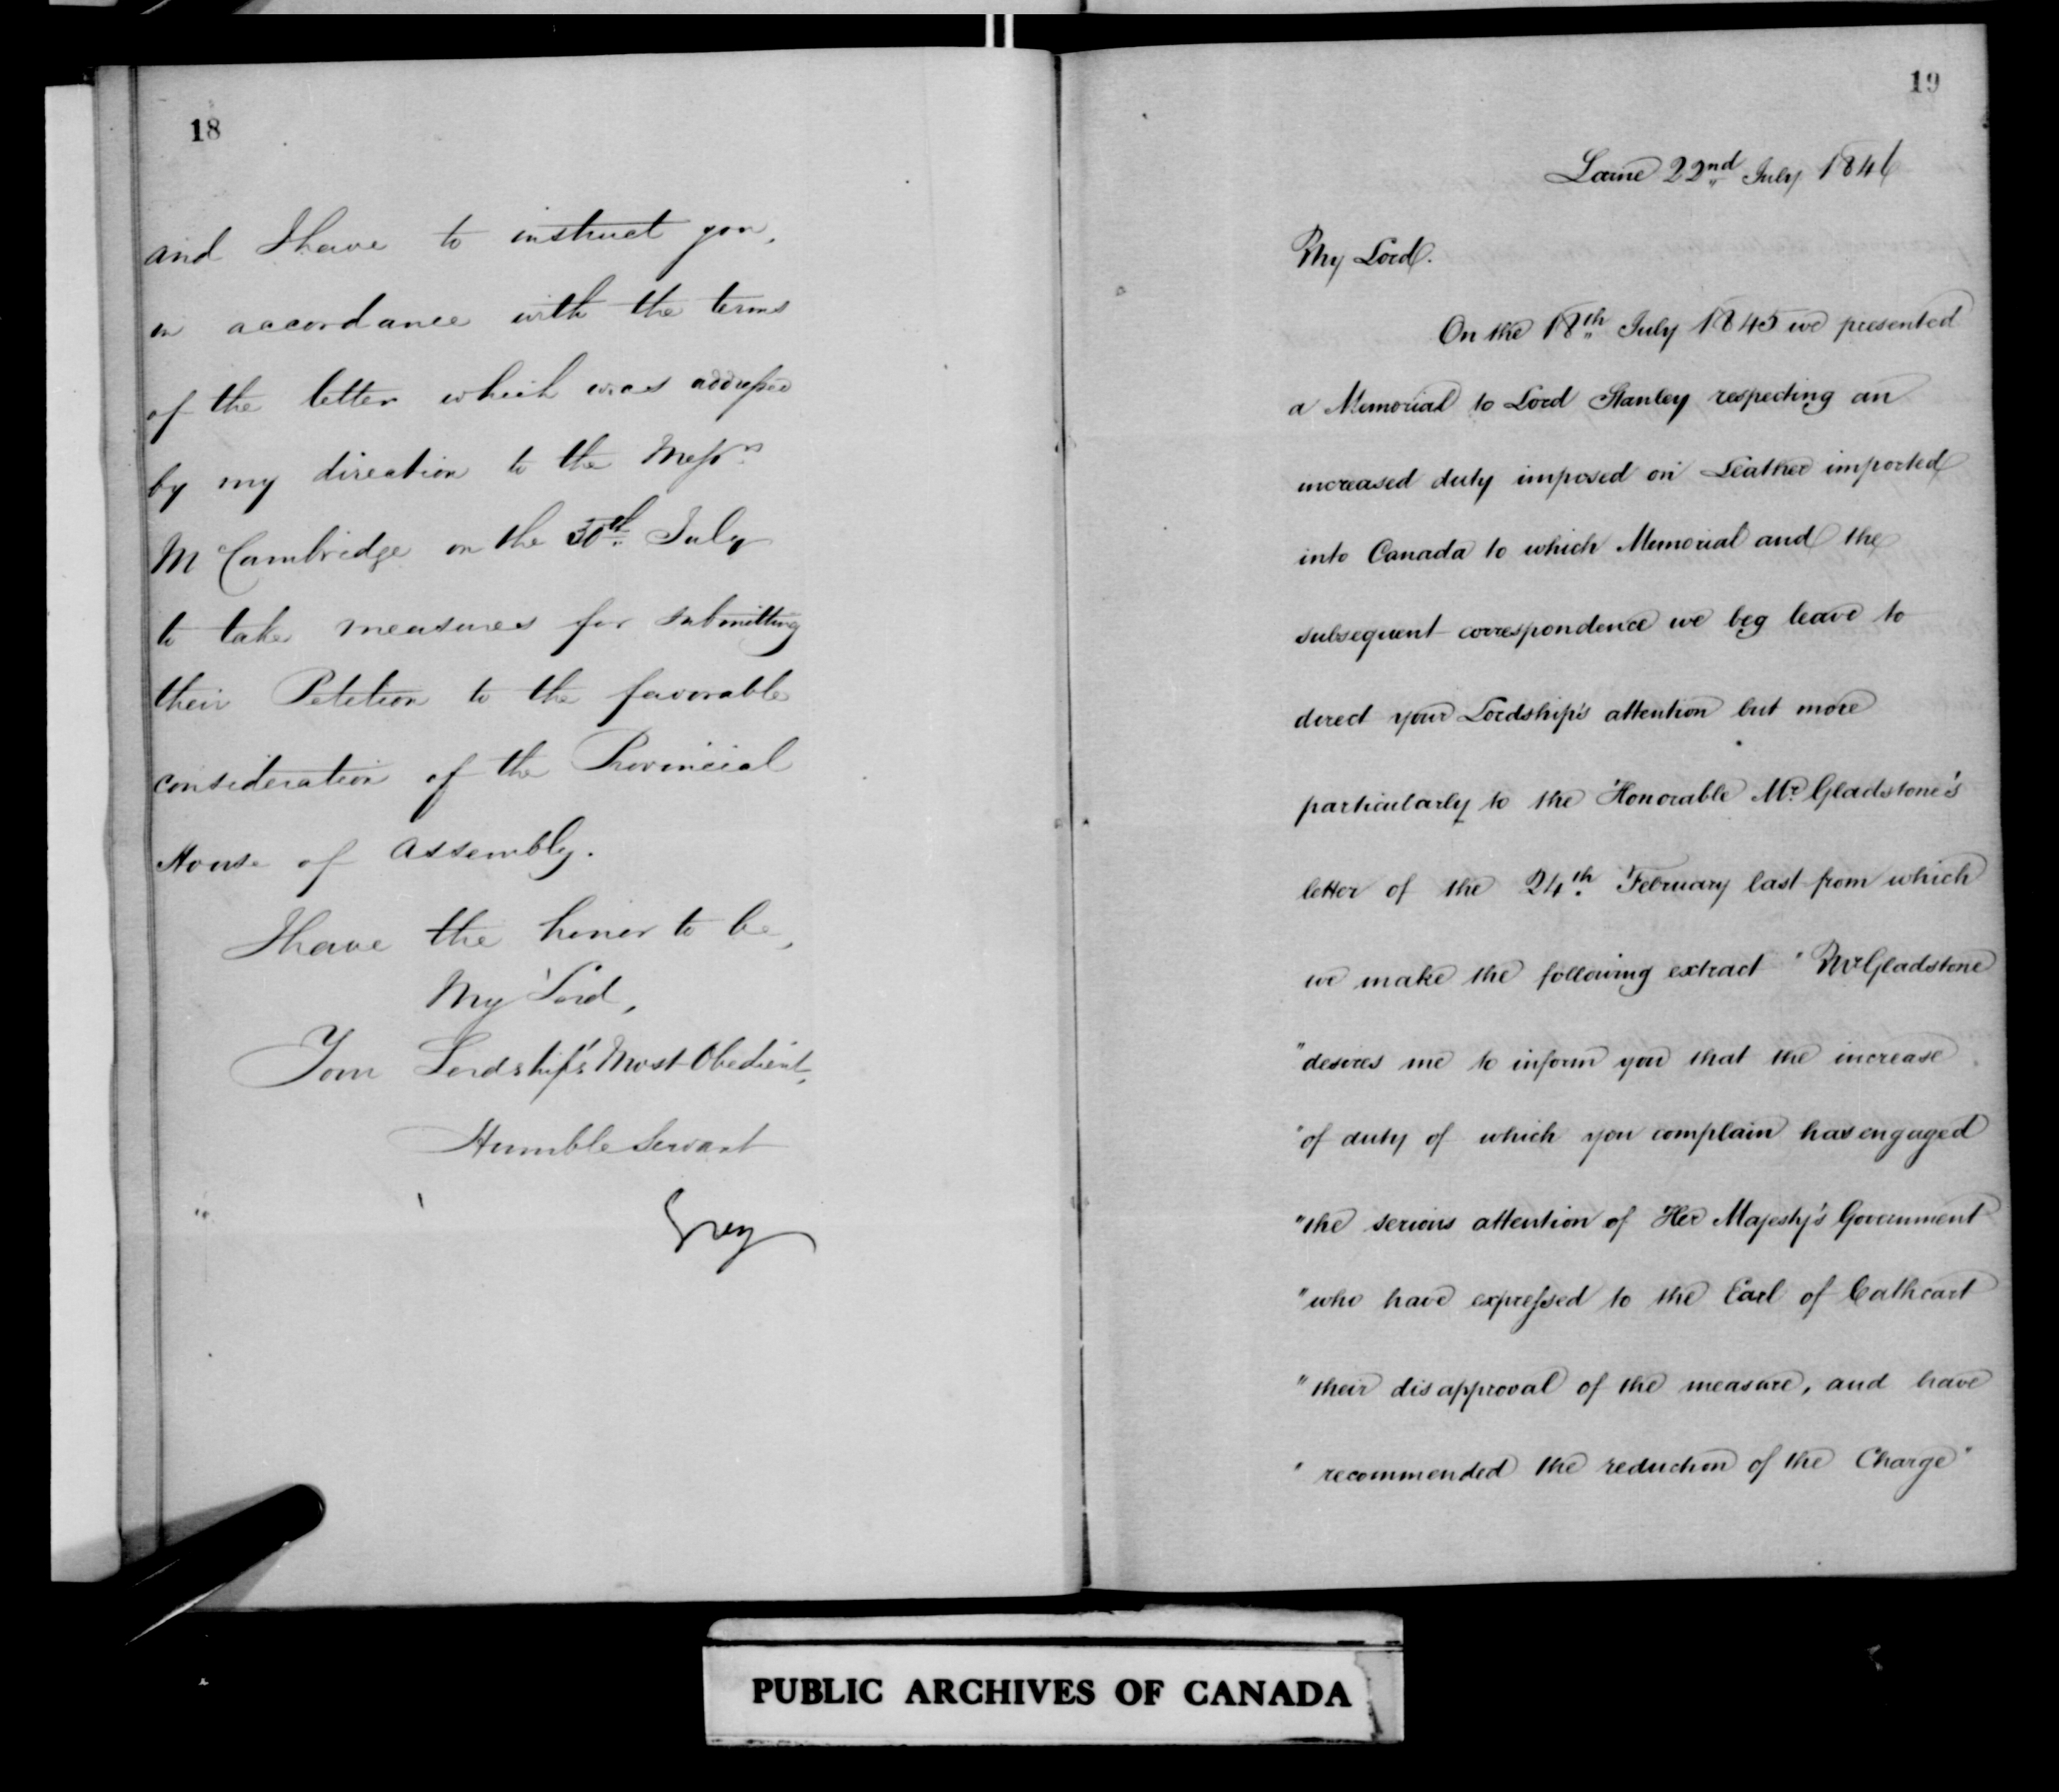 18
and I have to instruct you,
in accordance with the terms
of the letter which was addressed
by my direction to the Messrs.
McCambridge on the 30th. July
to take measures for submitting
their Petition to the favorable
consideration of the Provincial
House of Assembly.
I have the honor to be,
My Lord,
Your Lordship's Most Obedient,
Humble Servant
Grey
19
Larne 22nd July 1846
My Lord.
On the 18th July 1845 we presented
a Memorial to Lord Stanley respecting an
increased duty imposed on Leather imported
into Canada to which Memorial and the
subsequent correspondence we beg leave to
direct your Lordship's attention but more
particularly to the Honorable Mr. Gladstone's
letter of the 24th. February last from which
we make the following extract "Mr Gladstone
"desires me to inform you that the increase
"of duty of which you complain has engaged
"the serious attention of Her Majesty's Government
"who have expressed to the Earl of Cathcart
"their disapproval of the measure, and have
"recommended the reduction of the Charge"
PUBLIC ARCHIVES OF CANADA